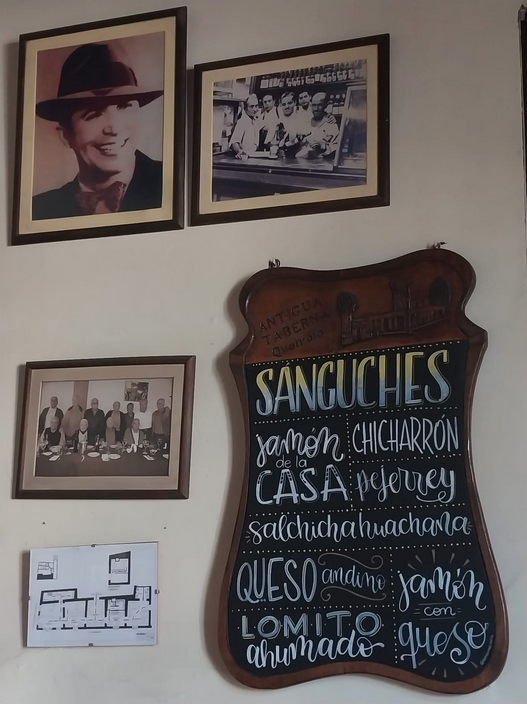 ANTIGUA
TABERNA
Queirolo
SÁNGUCHES
jamón
de la
CASA
CHICHARRÓN
pejerrey
salchicha huachana
QUESO andino
jamón
con
queso
LOMITO
ahumado